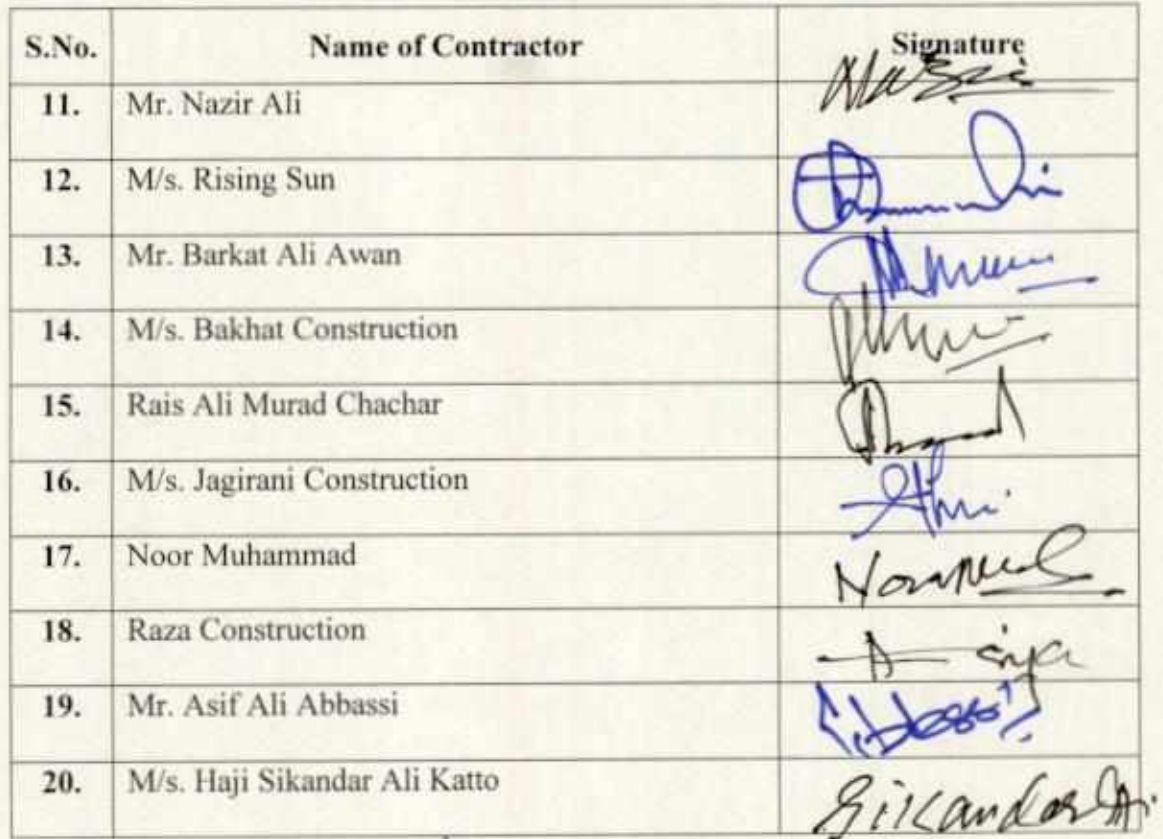 S.No. Name of Contractor Signature
11. Mr. Nazir Ali
12. M/s. Rising Sun
13. Mr. Barkat Ali Awan
14. M/s. Bakhat Construction
15. Rais Ali Murad Chachar
16. M/s. Jagirani Construction
17. Noor Muhammad
18. Raza Construction
19. Mr. Asif Ali Abbassi
20. M/s. Haji Sikandar Ali Katto Sikandar Ali